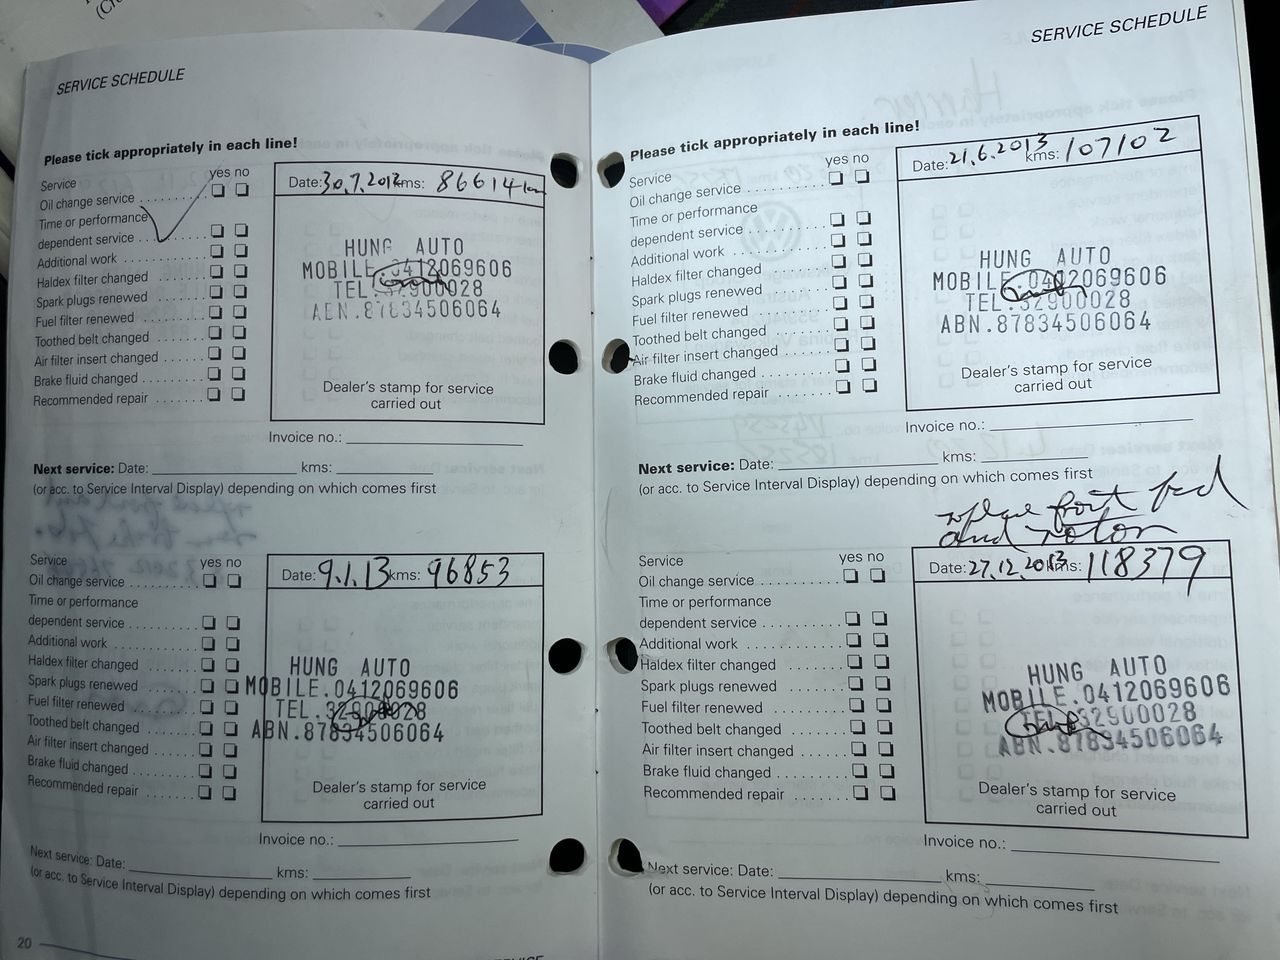 SERVICE SCHEDULE
Please tick appropriately in each line!
yes no
Service
Oil change service
Time or performance
dependent service
Additional work
Haldex filter changed
Spark plugs renewed
Fuel filter renewed
Toothed belt changed
Air filter insert changed
Brake fluid changed
Recommended repair
Date: 30.7.2012 kms: 86614 km
HUNG AUTO
MOBILE.0412069606
TEL.32900028
ABN.87834506064
Dealer's stamp for service
carried out
Invoice no.:
Next service: Date: kms:
(or acc. to Service Interval Display) depending on which comes first
Service yes no
Oil change service
Time or performance
dependent service
Additional work
Haldex filter changed
Spark plugs renewed
Fuel filter renewed
Toothed belt changed
Air filter insert changed
Brake fluid changed
Recommended repair
Date: 9.1.13 kms: 96853
HUNG AUTO
MOBILE.0412069606
TEL.32900028
ABN.87834506064
Dealer's stamp for service
carried out
Invoice no.:
Next service: Date: kms:
(or acc. to Service Interval Display) depending on which comes first
20
SERVICE SCHEDULE
Please tick appropriately in each line!
yes no
Service
Oil change service
Time or performance
dependent service
Additional work
Haldex filter changed
Spark plugs renewed
Fuel filter renewed
Toothed belt changed
Air filter insert changed
Brake fluid changed
Recommended repair
Date: 21.6.2013 kms: 107102
HUNG AUTO
MOBILE.0412069606
TEL.32900028
ABN.87834506064
Dealer's stamp for service
carried out
Invoice no.:
Next service: Date: kms:
(or acc. to Service Interval Display) depending on which comes first
and rotor
Service yes no
Oil change service
Time or performance
dependent service
Additional work
Haldex filter changed
Spark plugs renewed
Fuel filter renewed
Toothed belt changed
Air filter insert changed
Brake fluid changed
Recommended repair
Date: 27.12.2013 kms: 118379
HUNG AUTO
MOBILE.0412069606
TEL.32900028
ABN.87834506064
Dealer's stamp for service
carried out
Invoice no.:
Next service: Date: kms:
(or acc. to Service Interval Display) depending on which comes first